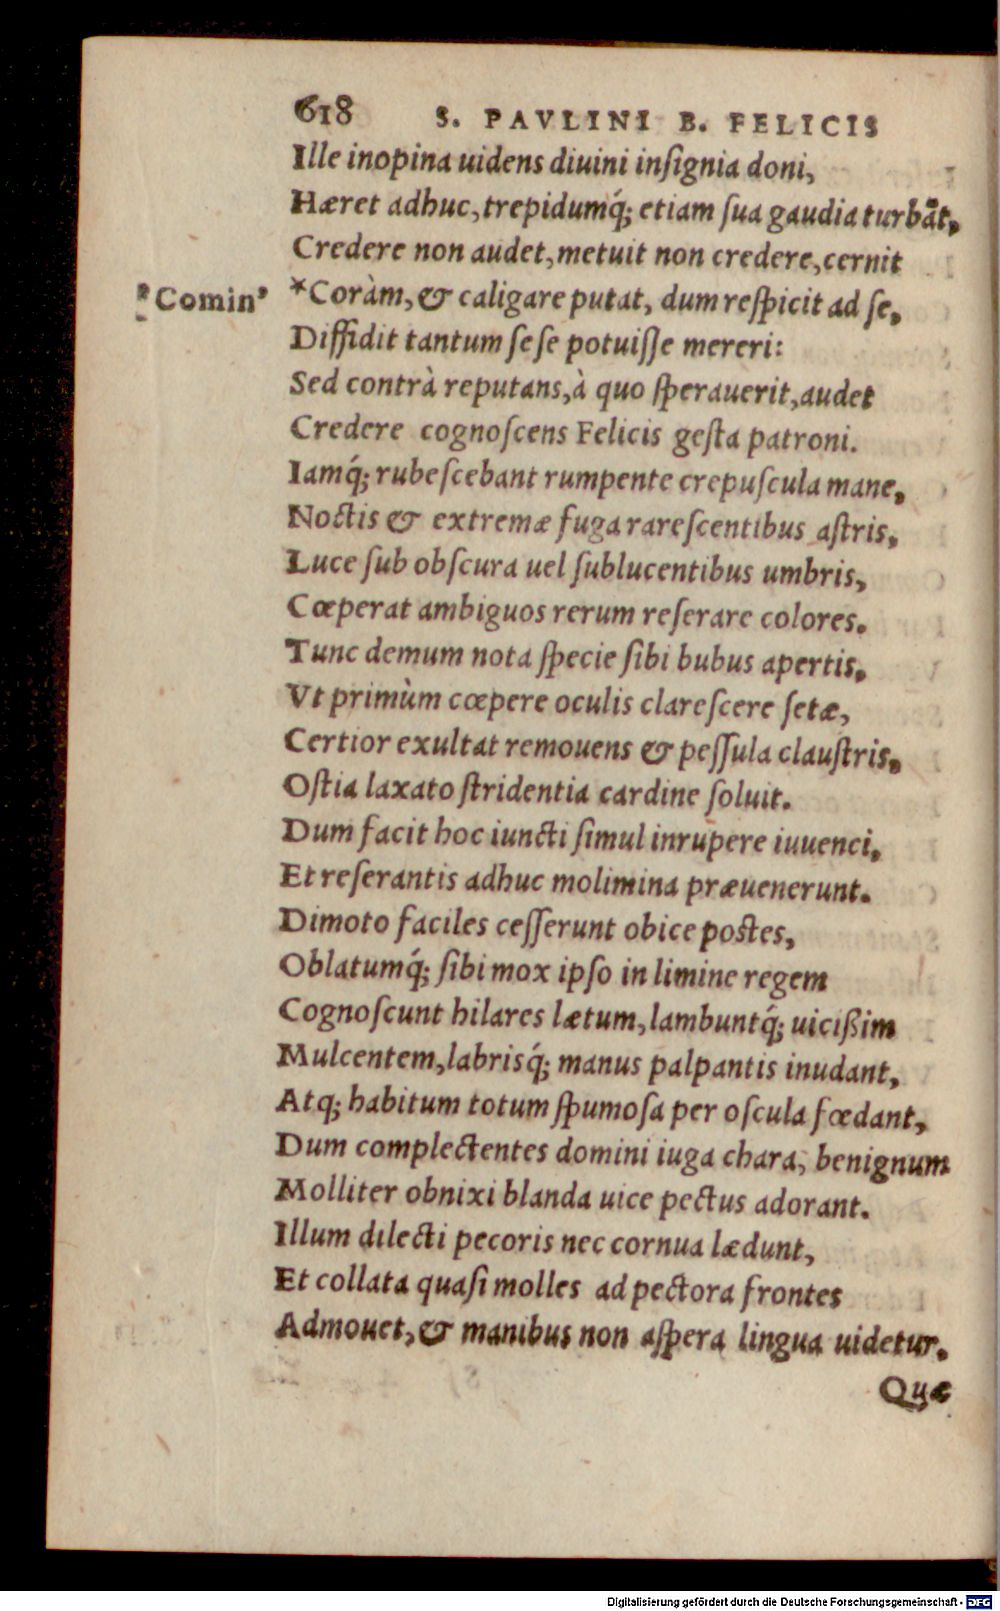 618 S. PAVLINI B. FELICIS
Ille inopina uidens diuini inſignia doni,
Hæret adhuc, trepidumq́; etiam ſua gaudia turbãt,
Credere non audet, metuit non credere, cernit
*Comin' *Coràm, & caligare putat, dum reſpicit ad ſe,
Diffidit tantum ſeſe potuiſſe mereri:
Sed contrà reputans, à quo ſperauerit, audet
Credere cognoſcens Felicis geſta patroni.
Iamq́; rubeſcebant rumpente crepuſcula mane,
Noctis & extremæ fuga rareſcentibus aſtris,
Luce ſub obſcura uel ſublucentibus umbris,
Cœperat ambiguos rerum reſerare colores.
Tunc demum nota ſpecie ſibi bubus apertis,
Vt primùm cœpere oculis clareſcere ſetæ,
Certior exultat remouens & peſſula clauſtris,
Oſtia laxato ſtridentia cardine ſoluit.
Dum facit hoc iuncti ſimul inrupere iuuenci,
Et reſerantis adhuc molimina præuenerunt.
Dimoto faciles ceſſerunt obice postes,
Oblatumq́; ſibi mox ipſo in limine regem
Cognoſcunt hilares lætum, lambuntq́; uicißim
Mulcentem, labrisq́; manus palpantis inudant,
Atq; habitum totum ſpumoſa per oſcula fœdant,
Dum complectentes domini iuga chara, benignum
Molliter obnixi blanda uice pectus adorant.
Illum dilecti pecoris nec cornua lædunt,
Et collata quaſi molles ad pectora frontes
Admouet, & manibus non aſpera lingua uidetur.
Quæ
Digitalisierung gefördert durch die Deutsche Forschungsgemeinschaft - DFG